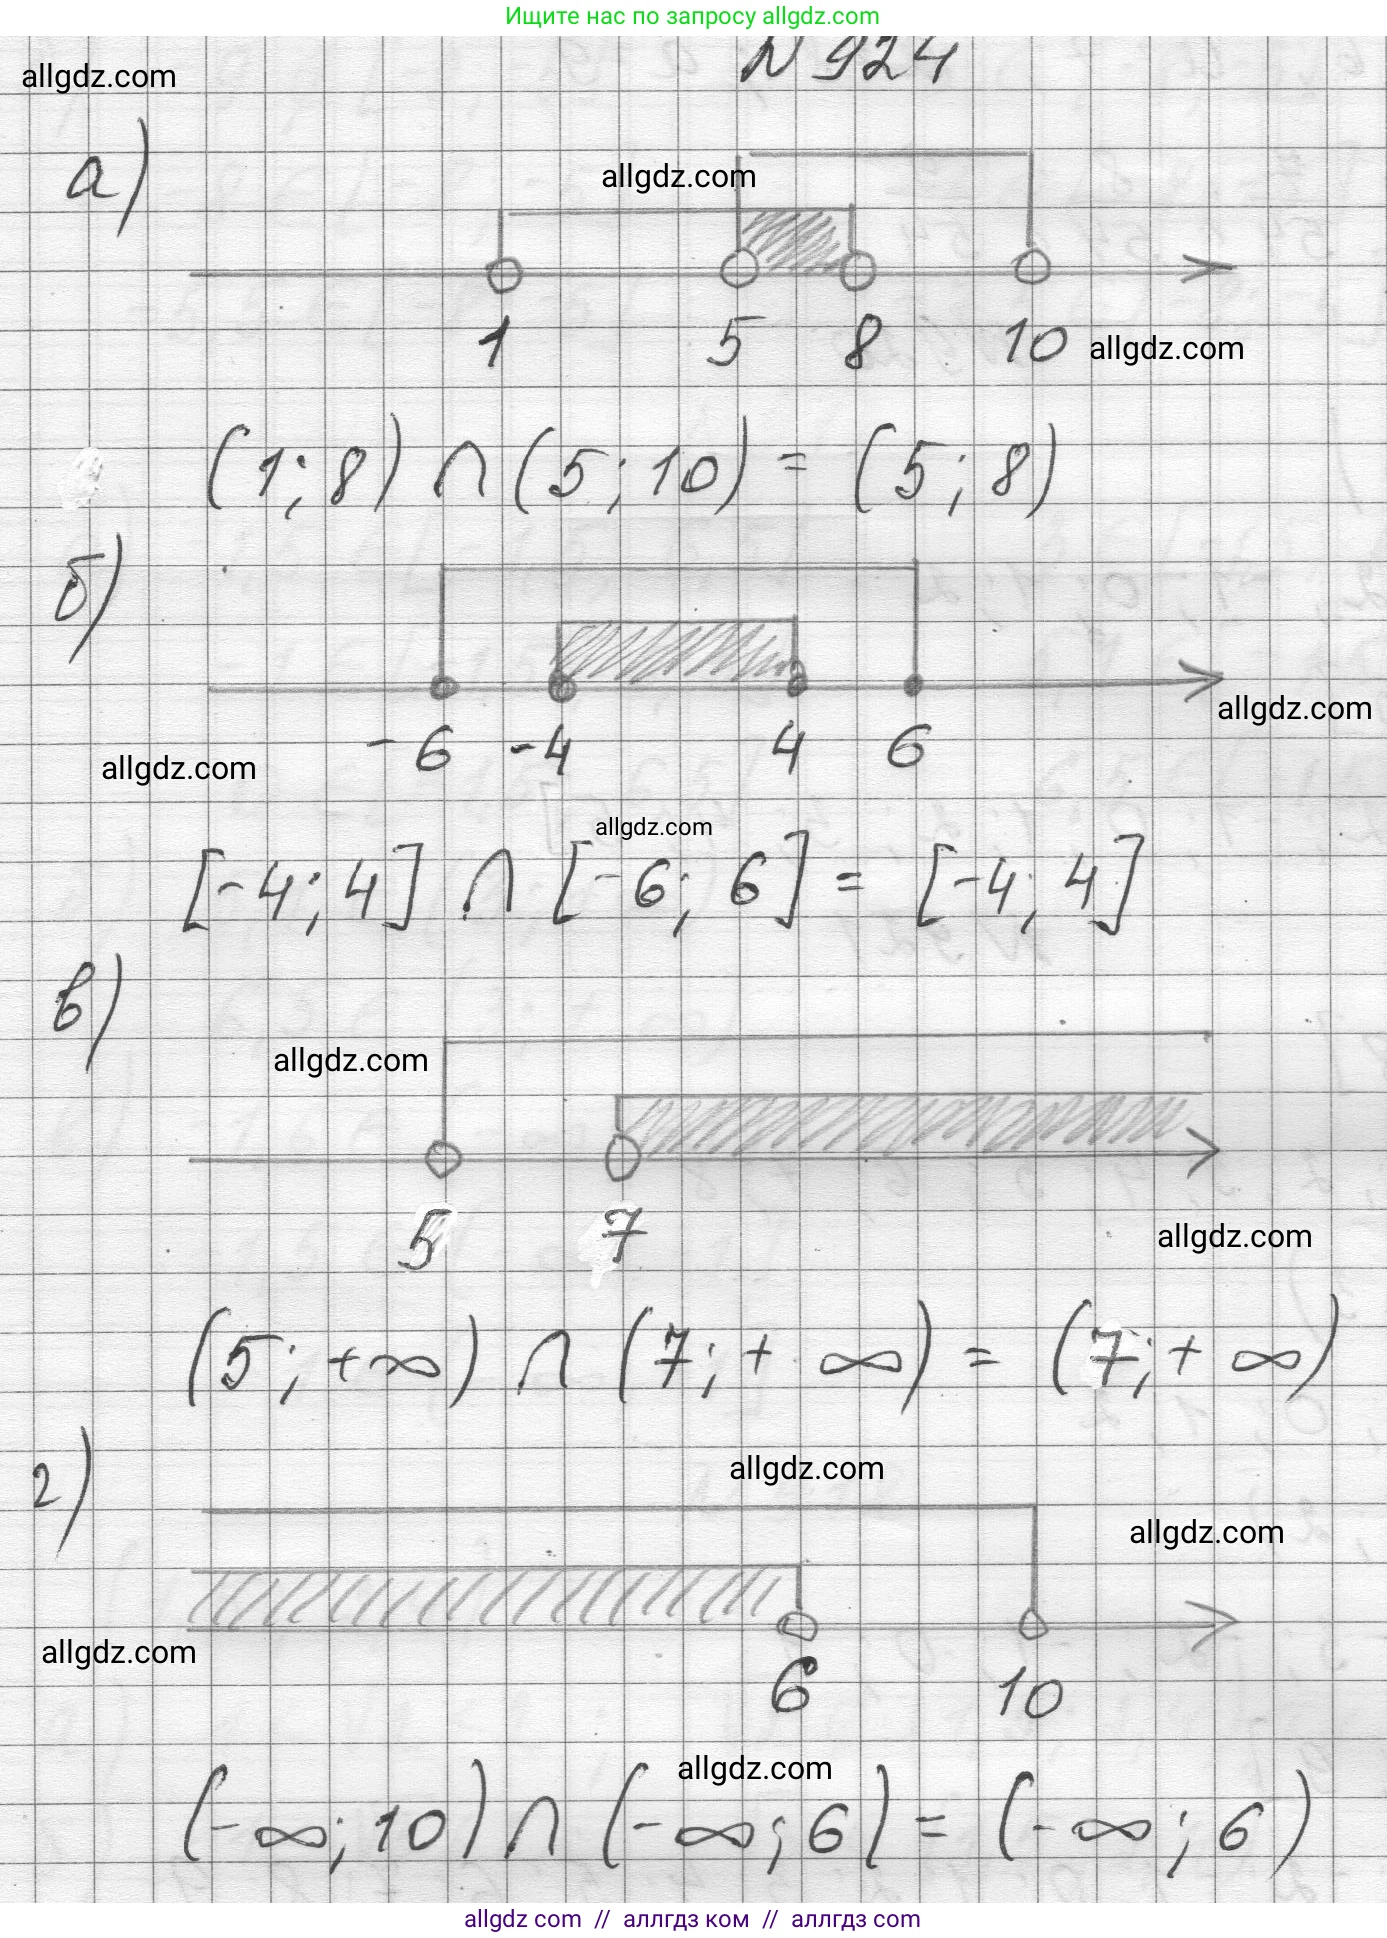 Ищите нас по запросу allgdz.com
N 924
allgdz.com
а)
allgdz.com
1 5 8 10
allgdz.com
(1; 8) ∩ (5; 10) = (5; 8)
б)
allgdz.com
-6 -4 4 6
allgdz.com
allgdz.com
[-4; 4] ∩ [-6; 6] = [-4; 4]
в)
allgdz.com
5 7
allgdz.com
(5; +∞) ∩ (7; + ∞) = (7; + ∞)
г)
allgdz.com
allgdz.com
allgdz.com
6 10
allgdz.com
(-∞; 10) ∩ (-∞; 6) = (-∞; 6)
allgdz com // аллгдз ком // аллгдз com